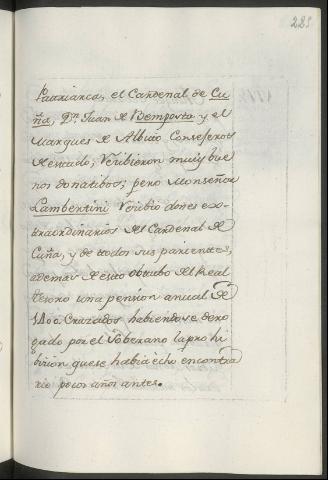 225
Patriarca, el Cardenal de Cu-
ña, Dn. Juan de Bemposta y el
Marques de Albito Consejeros
de estado, recibieron muy bue
nos donatibos; pero Monseñor
Lambertini recibio dones ex-
traordinarios del Cardenal de
Cuña, y de todos sus parientes,
ademas de esto obtubo del Real
tesoro una pension anual de
1400 Cruzados habiendose dero
gado por el Soberano la prohi
bicion que se habia echo en contra
rio pocos años antes.